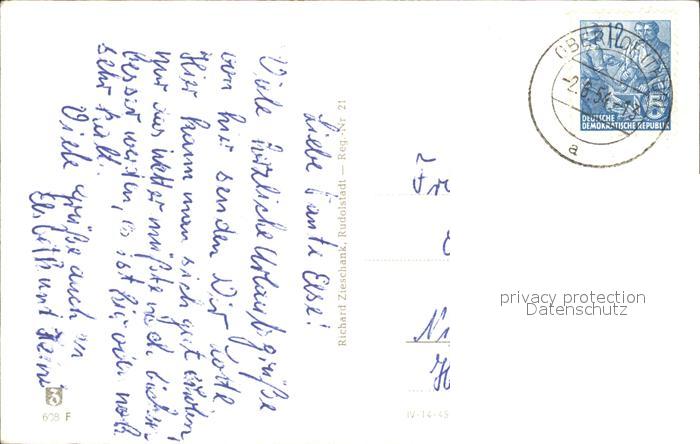 Liebe Tante Else!
Viele herzliche Urlaubsgrüße
von hier senden Dir Lotte
Hier kann man sich gut erholen,
nur das Wetter müßte noch
besser werden, es ist hier oben noch
sehr kalt.
Viele Grüße auch an
Elsbeth und Heini
Richard Zieschank, Rudolstadt — Reg.-Nr 21
608 F
IV-14-45
12
DEUTSCHE
DEMOKRATISCHE REPUBLIK
OBERHOF (THÜR)
a
Fr
privacy protection
Datenschutz